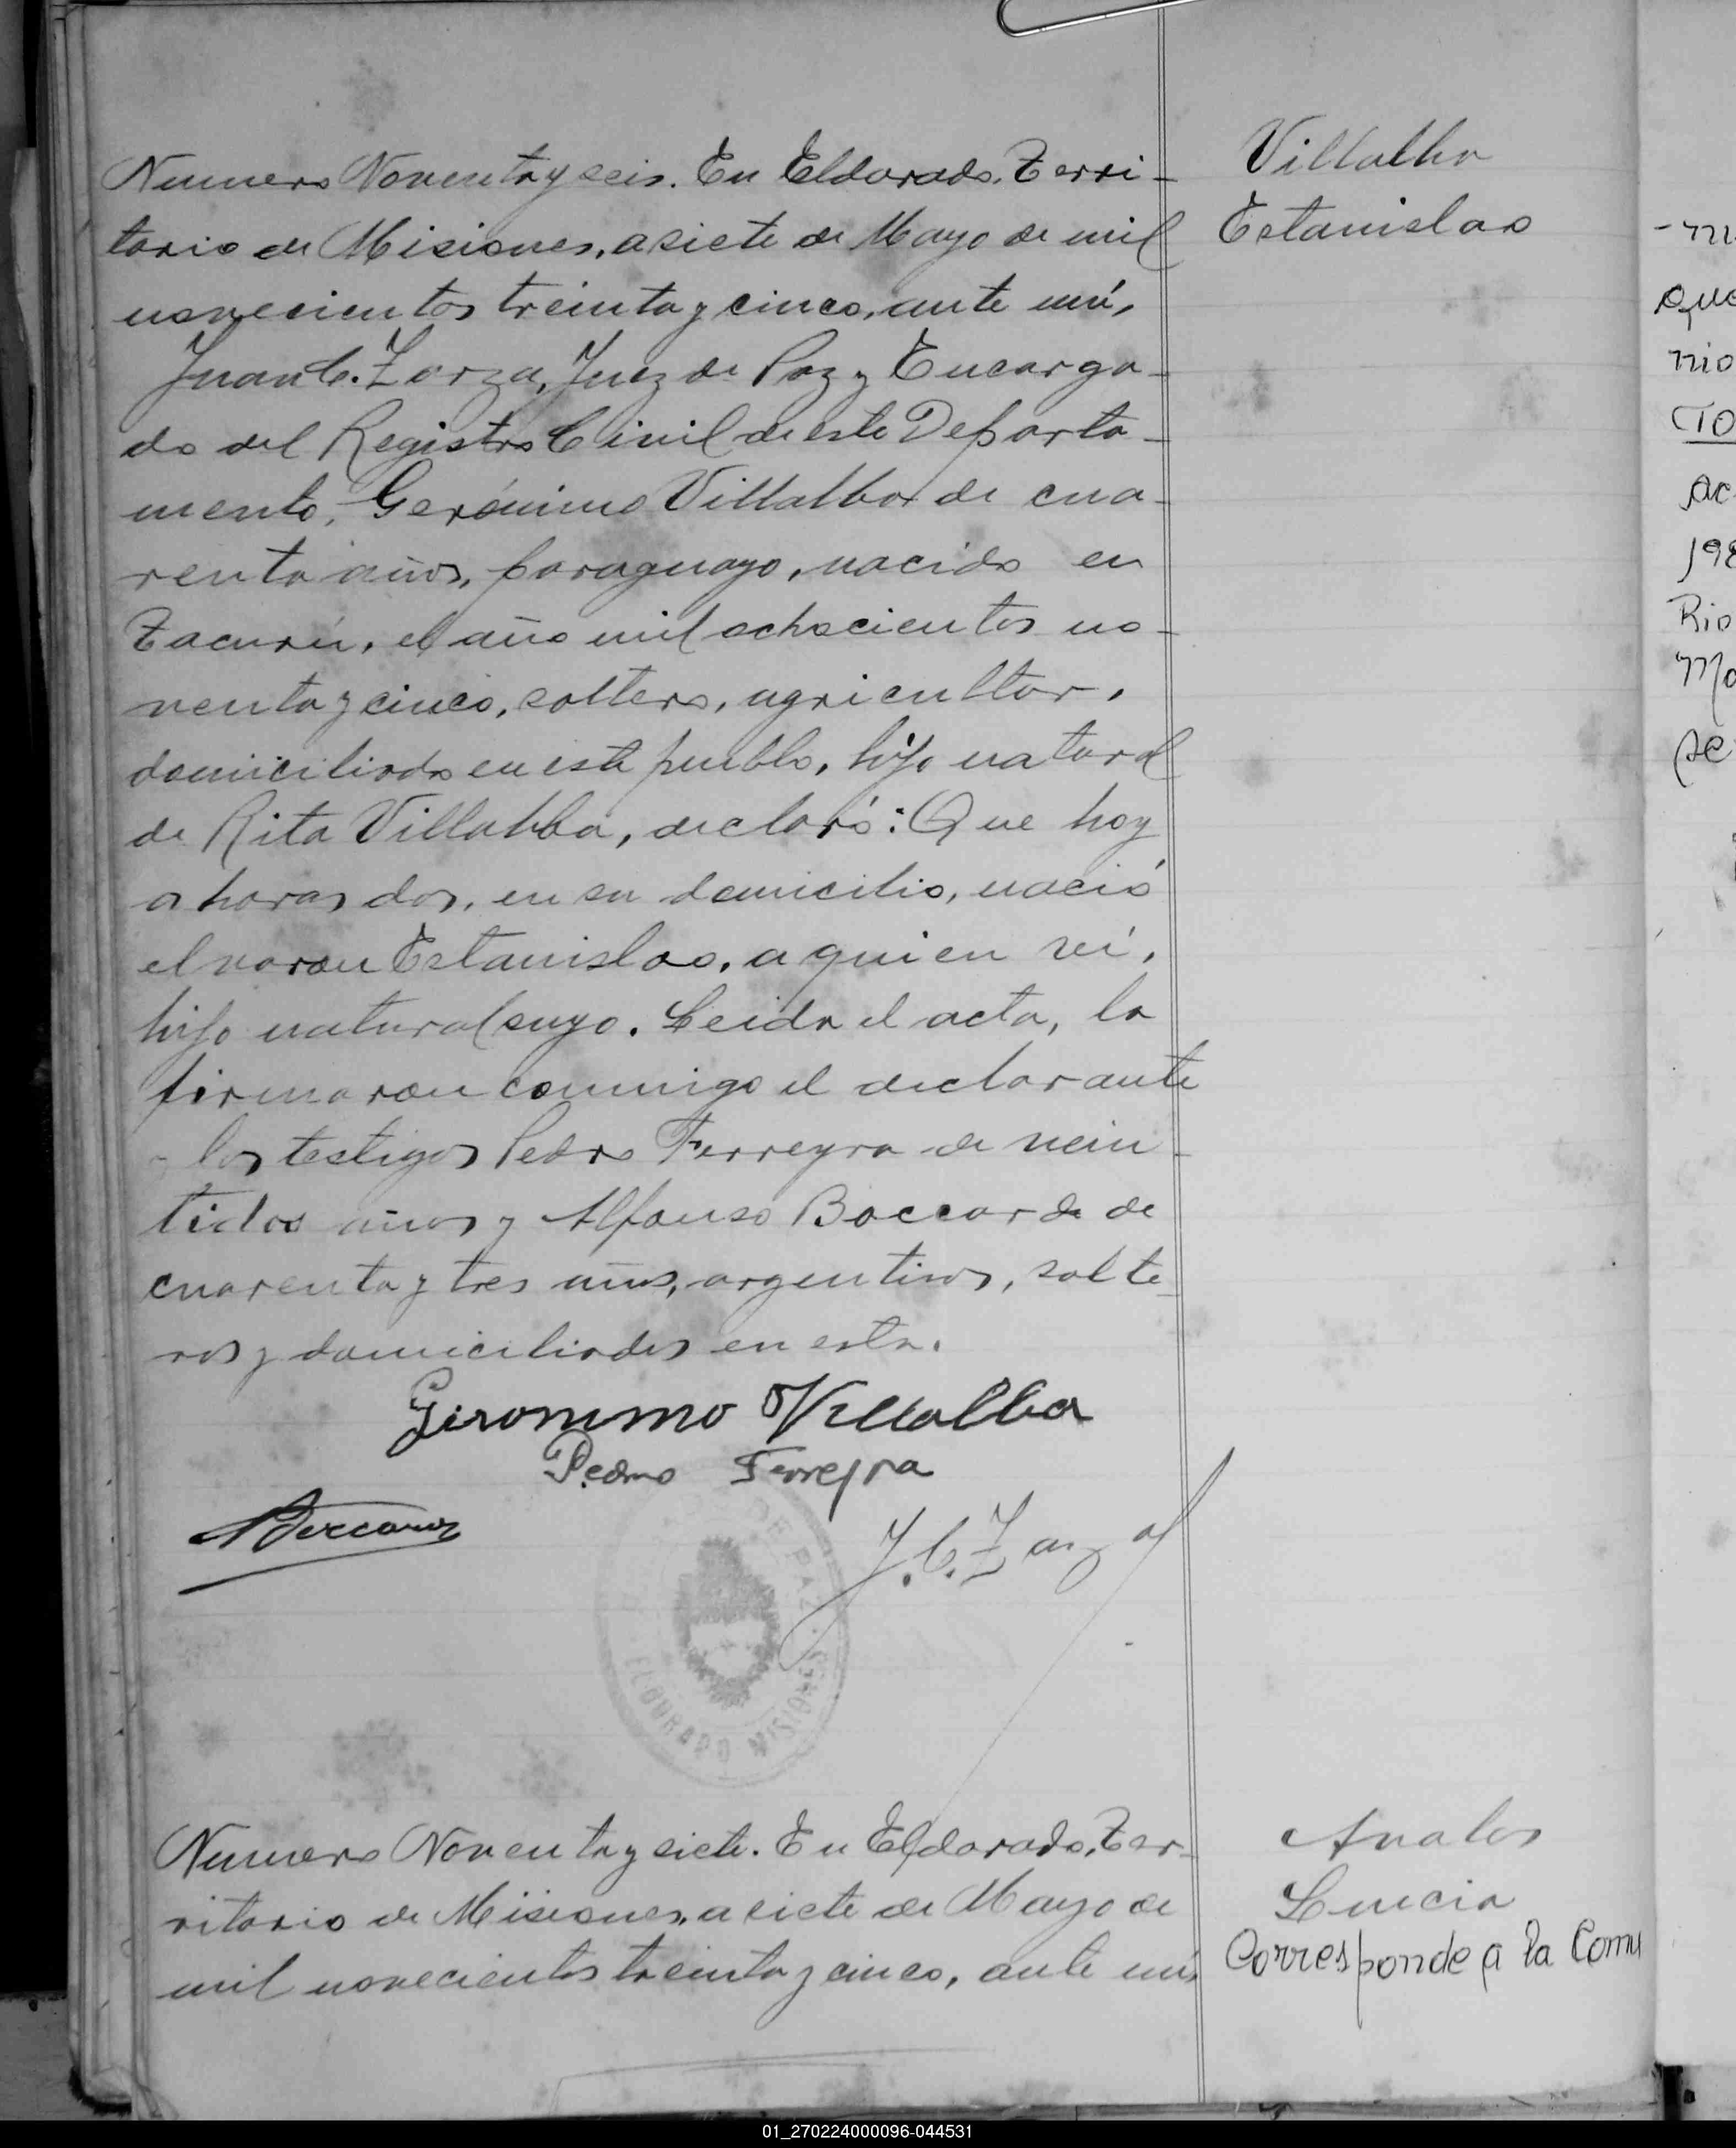 Villalba
Estanislao
Numero Noventa y seis. En Eldorado, Terri-
torio de Misiones, a siete de Mayo de mil
novecientos treinta y cinco, ante mí,
Juan C. Zarza, Juez de Paz y Encarga-
do del Registro Civil de este Departa-
mento, Gerónimo Villalba de cua-
renta años, paraguayo, nacido en
el año mil ochocientos no-
venta y cinco, soltero, agricultor,
domiciliado en este pueblo, hijo natural
de Rita Villalba, declaró: Que hoy
a horas dos, en su domicilio, nació
el varon Estanislao, a quien ví,
hijo natural suyo. Leida el acta, la
firmaron conmigo el declarante
y los testigos Pedro Ferreyra de vein-
tidos años y Alfonso Boccarde de
cuarenta y tres años, argentinos, solte
ros y domiciliados en esta.
Jironimo Villalba
Pedro Ferreyra
J. C. Zarza
DE PAZ
ELDORADO MISIONES
Avalos
Lucia
Corresponde a la Comu
Numero Noventa y siete. En Eldorado, Ter-
ritorio de Misiones, a siete de Mayo de
mil novecientos treinta y cinco, ante mí,
- m
que
nio
CTO
ac
198
Rio
Ma
se
01_270224000096-044531